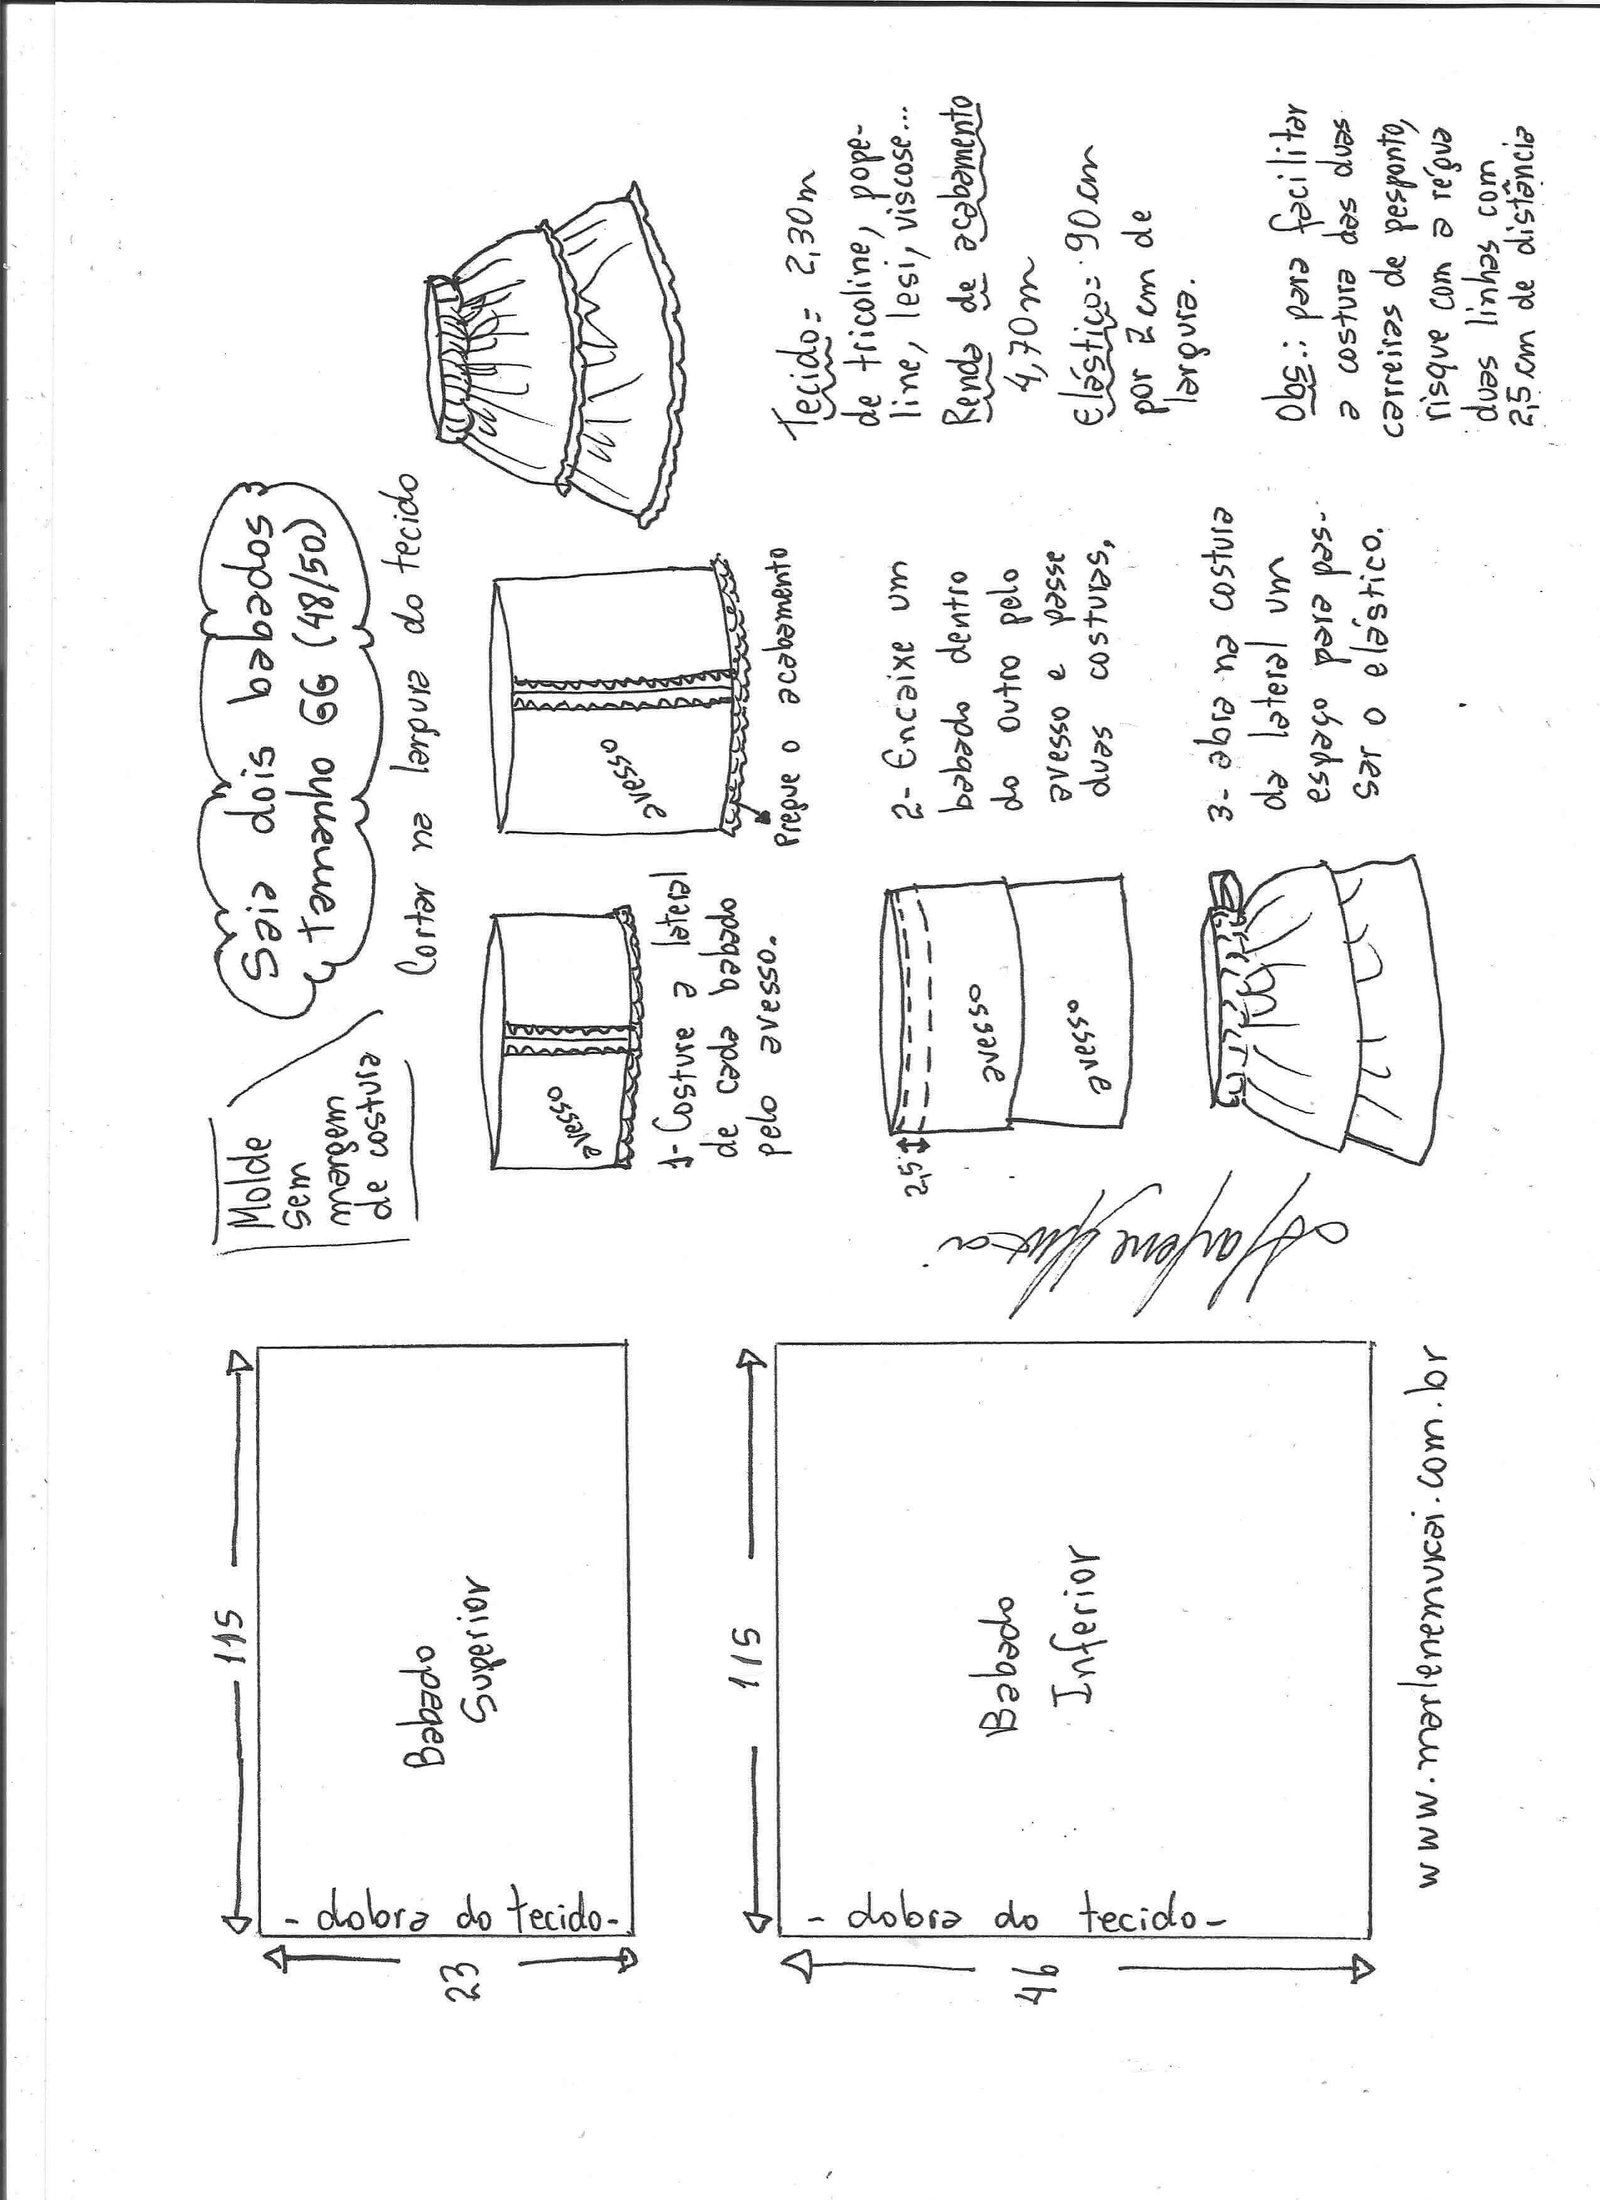 Molde
sem
margem
de costura
Saia dois babados
Tamanho GG (48/50)
Cortar na largura do tecido
115
Babado
Superior
- dobra do tecido-
23
115
Babado
Inferior
- dobra do tecido-
46
www.marlenemukai.com.br
avesso
1- Costure a lateral
de cada babado
pelo avesso.
avesso
Pregue o acabamento
2,5
avesso
avesso
2- Encaixe um
babado dentro
do outro pelo
avesso e passe
duas costuras,
3- abra na costura
da lateral um
espaço para pas-
sar o elástico.
Marlene Mukai
Tecido= 2,30m
de tricoline, pope-
line, lesi, viscose...
Renda de acabamento
4,70m
Elástico= 90cm
por 2cm de
largura.
Obs.: para facilitar
a costura das duas
carreiras de pesponto,
risque com a régua
duas linhas com
2,5cm de distância